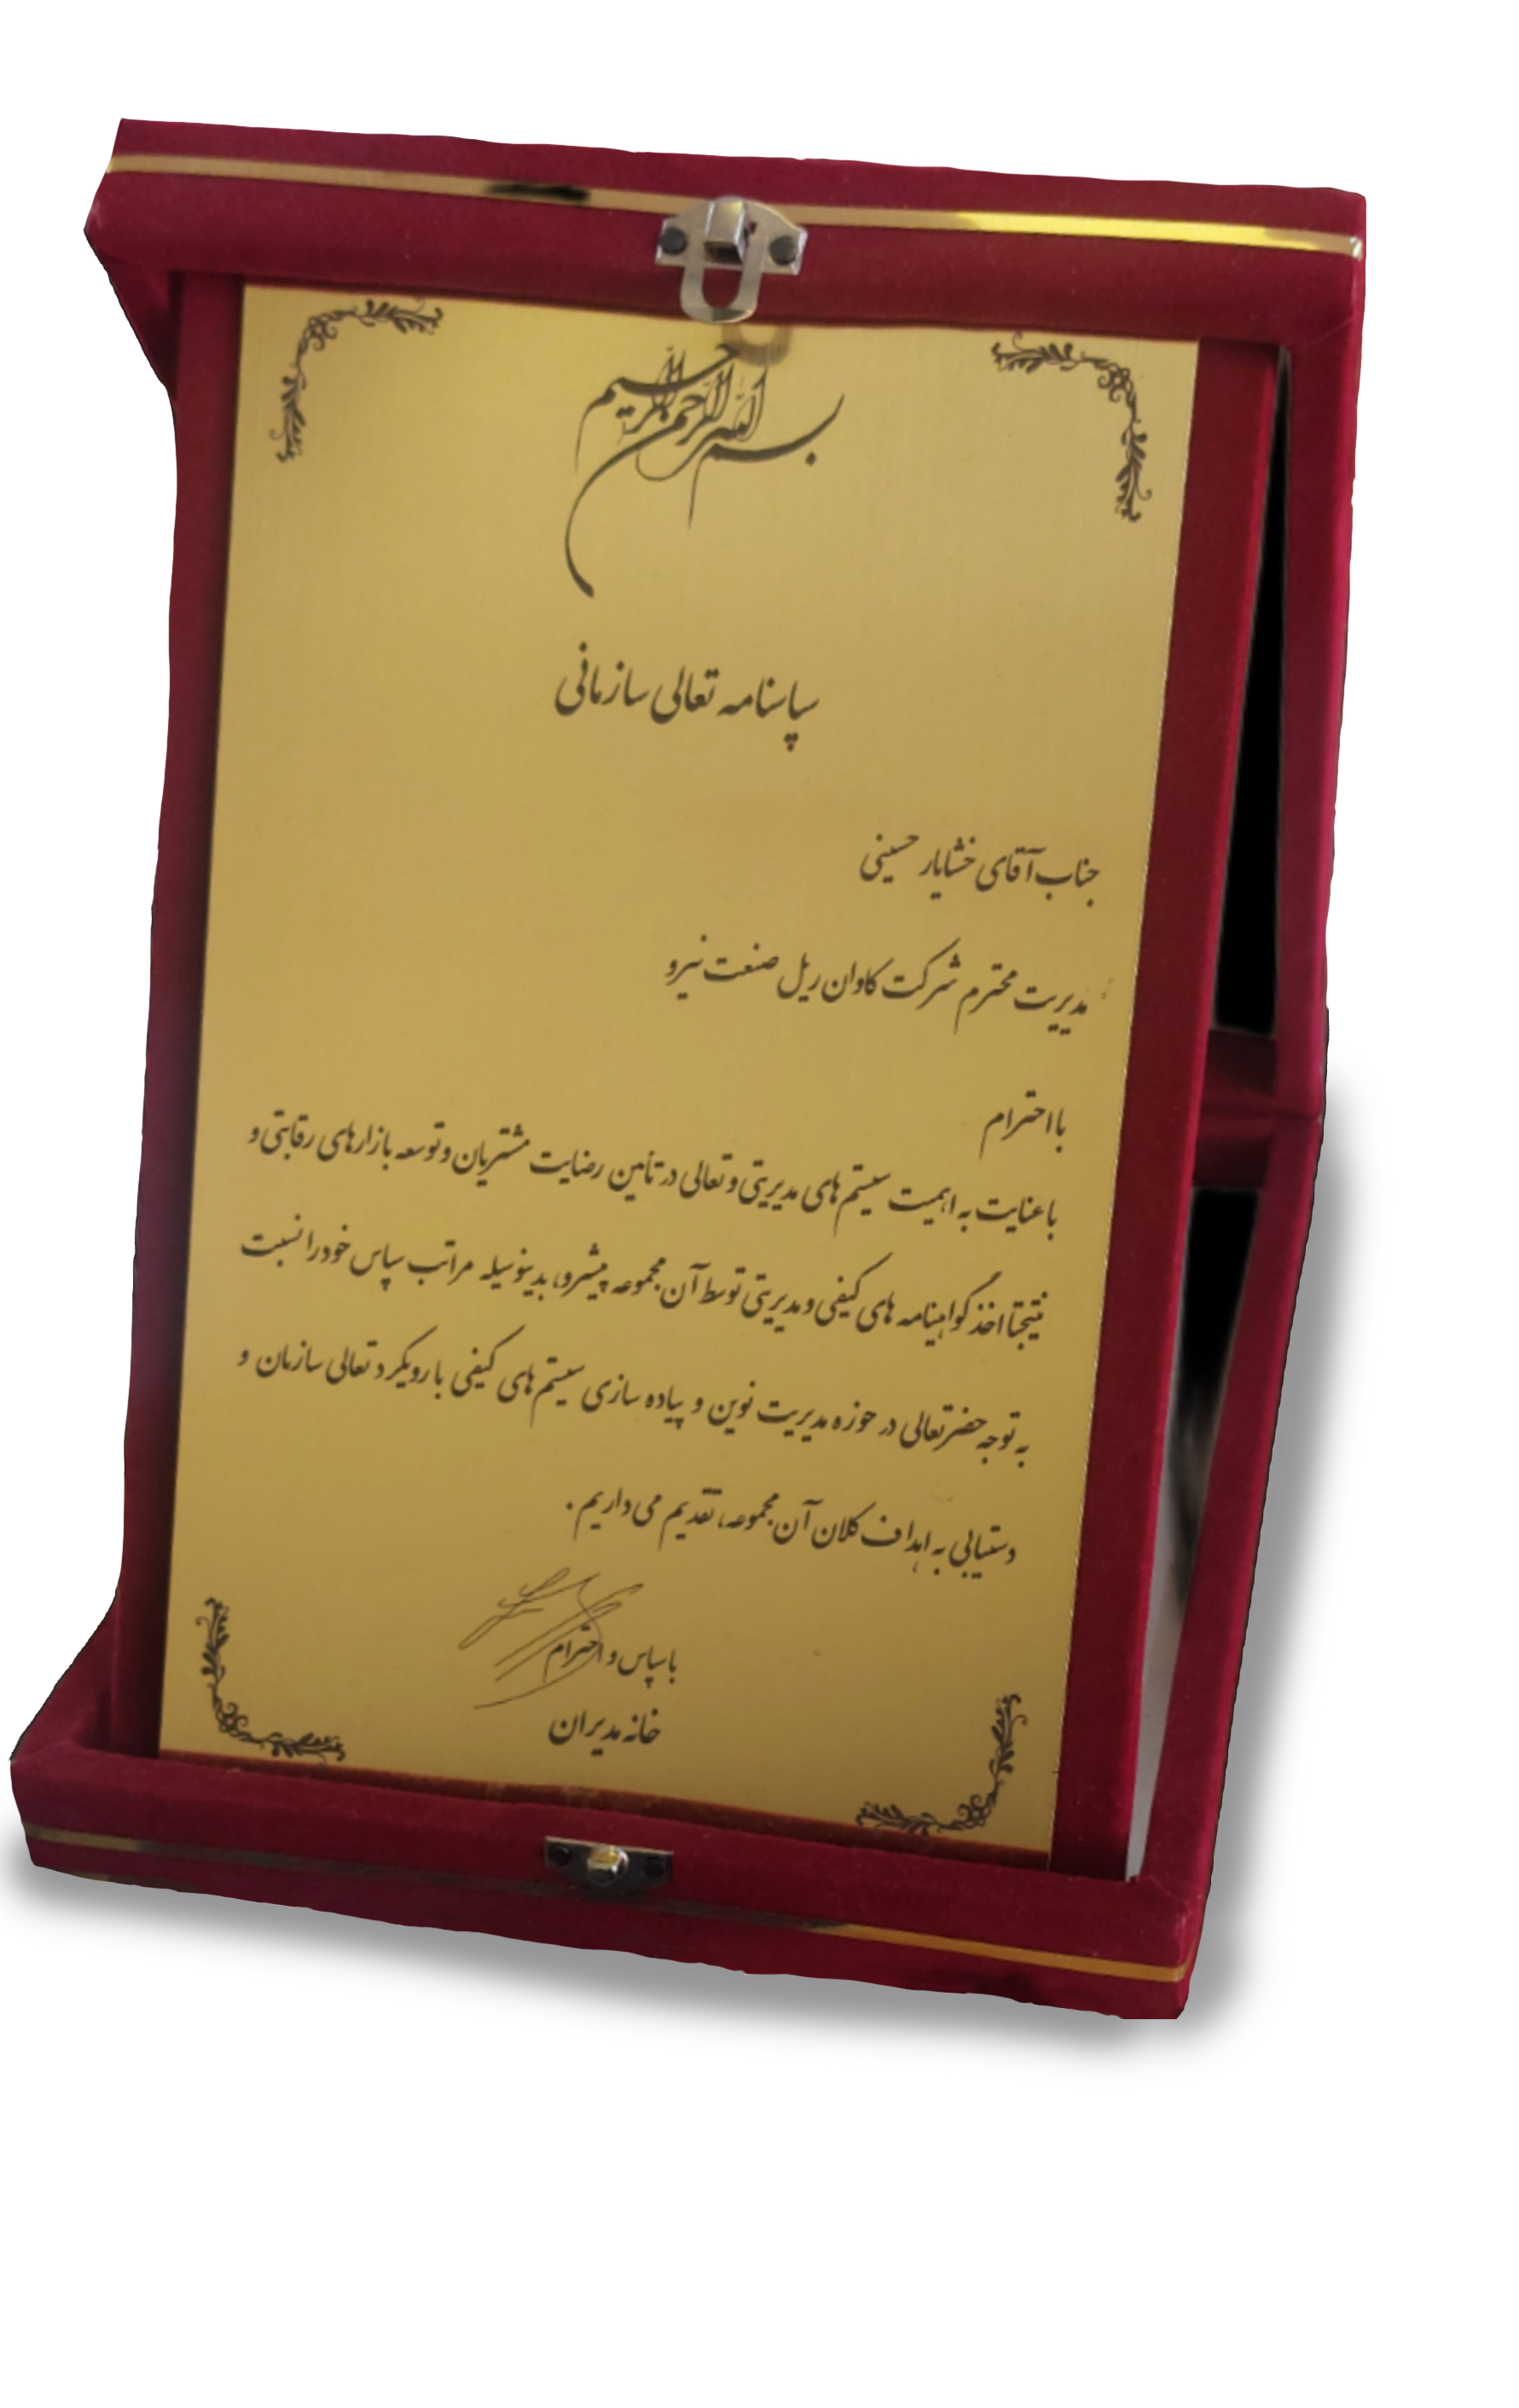 بسم الله الرحمن الرحیم
سپاسنامه تعالی سازمانی
جناب آقای خشایار حسینی
مدیریت محترم شرکت کاوان ریل صنعت نیرو
با احترام
با عنایت به اهمیت سیستم های مدیریتی و تعالی در تأمین رضایت مشتریان و توسعه بازارهای رقابتی و
نتیجتا اخذ گواهینامه های کیفی و مدیریتی توسط آن مجموعه پیشرو، بدینوسیله مراتب سپاس خود را نسبت
به توجه حضرتعالی در حوزه مدیریت نوین و پیاده سازی سیستم های کیفی با رویکرد تعالی سازمان و
دستیابی به اهداف کلان آن مجموعه، تقدیم می داریم.
با سپاس و احترام
خانه مدیران